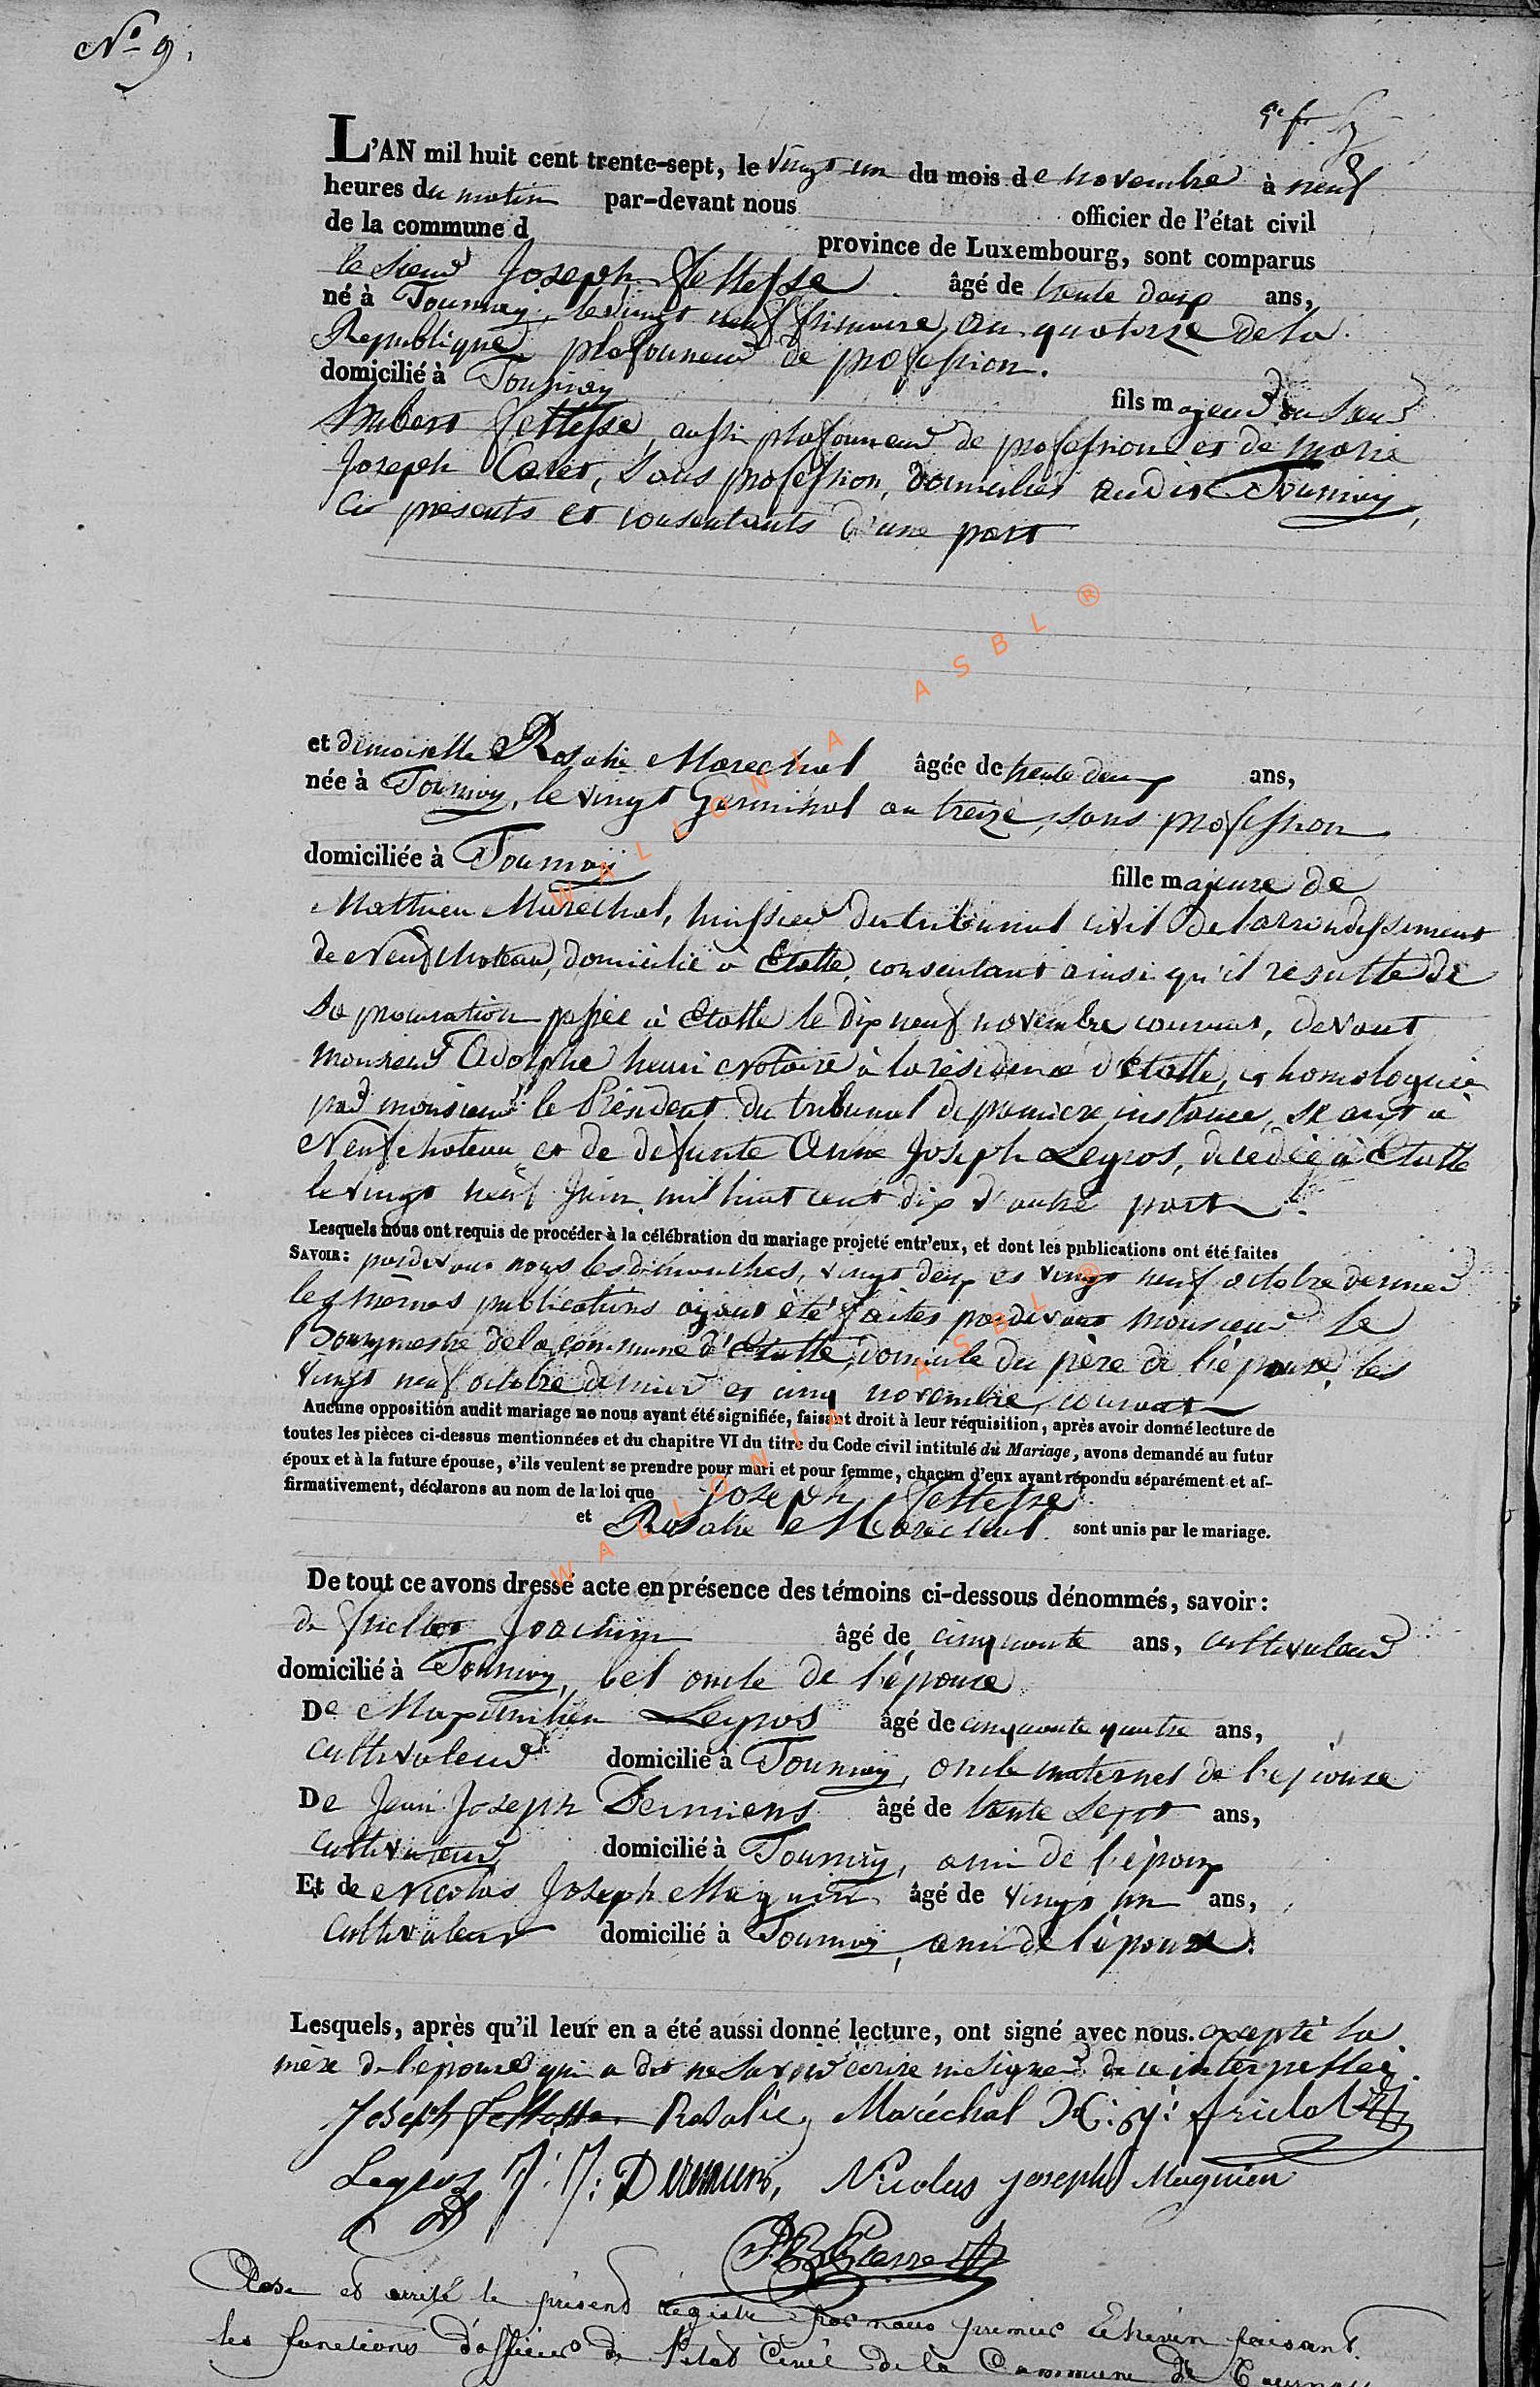 No 9.
L'AN mil huit cent trente-sept, le vingt un du mois de novembre à neuf
heures du matin par-devant nous officier de l'état civil
de la commune d province de Luxembourg, sont comparus
le Sieur Joseph Jettesse âgé de trente deux ans,
né à Tournay, le vingt neuf frimaire, an quatorze de la
Republique, plafonneur de profession.
domicilié à Tournay fils majeur du Sieur
hubert Jettesse, aussi plafonneur de profession et de marie
Joseph Collet, sans profession, domiciliés audit Tournay,
ci présents et consentants d'une part
et demoiselle Rosalie Marechal âgée de trente deux ans,
née à Tournay, le vingt Germinal an treize, sans profession
domiciliée à Tournay fille majeure de
Mathieu Maréchal, huissier du tribunal civil de l'arrondissement
de Neufchateau, domicilié à Etalle, consentant ainsi qu'il resulte de
sa procuration passée à Etalle le dix neuf novembre courant, devant
monsieur Adolphe henri Notaire à la résidence d'Etalle, et homologuée
par monsieur le Président du tribunal de première instance, séant à
Neufchateau et de défunte Anne Joseph Legros, décédée à Etalle
le vingt neuf Juin mil huit cent dix d'autre part.
Lesquels nous ont requis de procéder à la célébration du mariage projeté entr'eux, et dont les publications ont été faites
SAVOIR: pardevant nous les dimanches, vingt deux et vingt neuf octobre dernier
les mêmes publications ayant été faites pardevant monsieur le
Bourgmestre de la commune d'Etalle, domicile du père de l'épouse, les
vingt neuf octobre dernier et cinq novembre courant
Aucune opposition audit mariage ne nous ayant été signifiée, faisant droit à leur réquisition, après avoir donné lecture de
toutes les pièces ci-dessus mentionnées et du chapitre VI du titre du Code civil intitulé du Mariage, avons demandé au futur
époux et à la future épouse, s'ils veulent se prendre pour mari et pour femme, chacun d'eux ayant répondu séparément et af-
firmativement, déclarons au nom de la loi que Joseph Jettesse
et Rosalie Maréchal sont unis par le mariage.
De tout ce avons dressé acte en présence des témoins ci-dessous dénommés, savoir:
de Joachim âgé de cinquante ans, cultivateur
domicilié à Tournay, bel oncle de l'épouse
De Maximilien Legros âgé de cinquante quatre ans,
cultivateur domicilié à Tournay, oncle maternel de l'épouse
De Jean Joseph Dermiens âgé de trente sept ans,
cultivateur domicilié à Tournay, ami de l'époux
Et de Nicolas Joseph Maquien âgé de vingt un ans,
cultivateur domicilié à Tournay, ami de l'épouse.
Lesquels, après qu'il leur en a été aussi donné lecture, ont signé avec nous. excepté la
mère de l'époux qui a dit ne savoir écrire ni signer de ce interpellée.
Joseph Jettesse Rosalie Maréchal
Legros J: J: Dermiens, Nicolas Joseph Maquien
Clos et arrêté le présent régistre par nous premier Echevin faisant
les fonctions d'officier de l'etat Civil de la Commune de Tournay
WALLONIA ASBL ®
WALLONIA ASBL ®